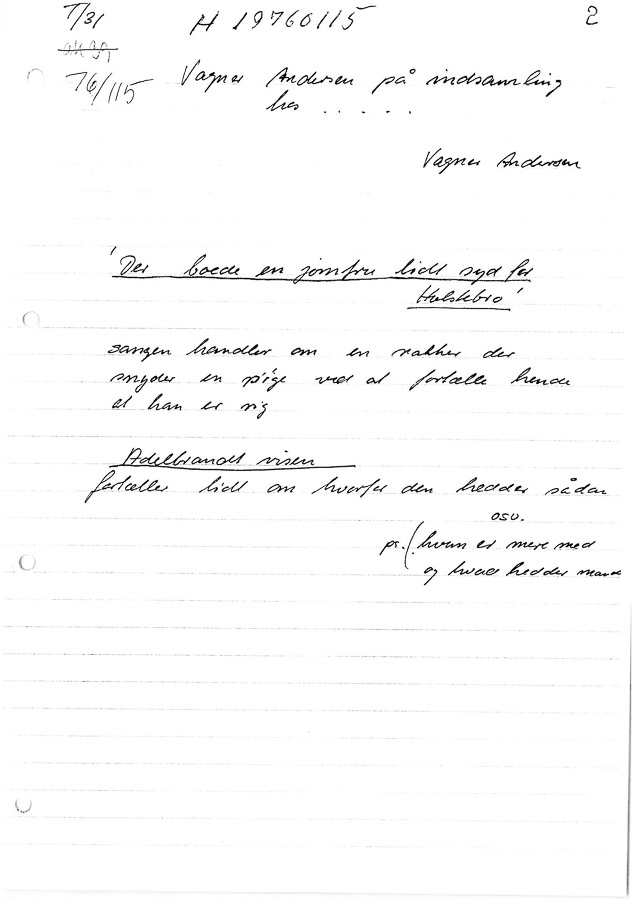 T/31
H 19760115
2
76/115
Vagner Andersen på indsamling
hos . . . . .
Vagner Andersen
'Der boede en jomfru lidt syd for
Holstebro'
sangen handler om en rakker der
snyder en pige ved at fortælle hende
at han er rig
Adelbrandt visen
fortæller lidt om hvorfor den hedder sådan
osv.
hvem er mere med
og hvad hedder